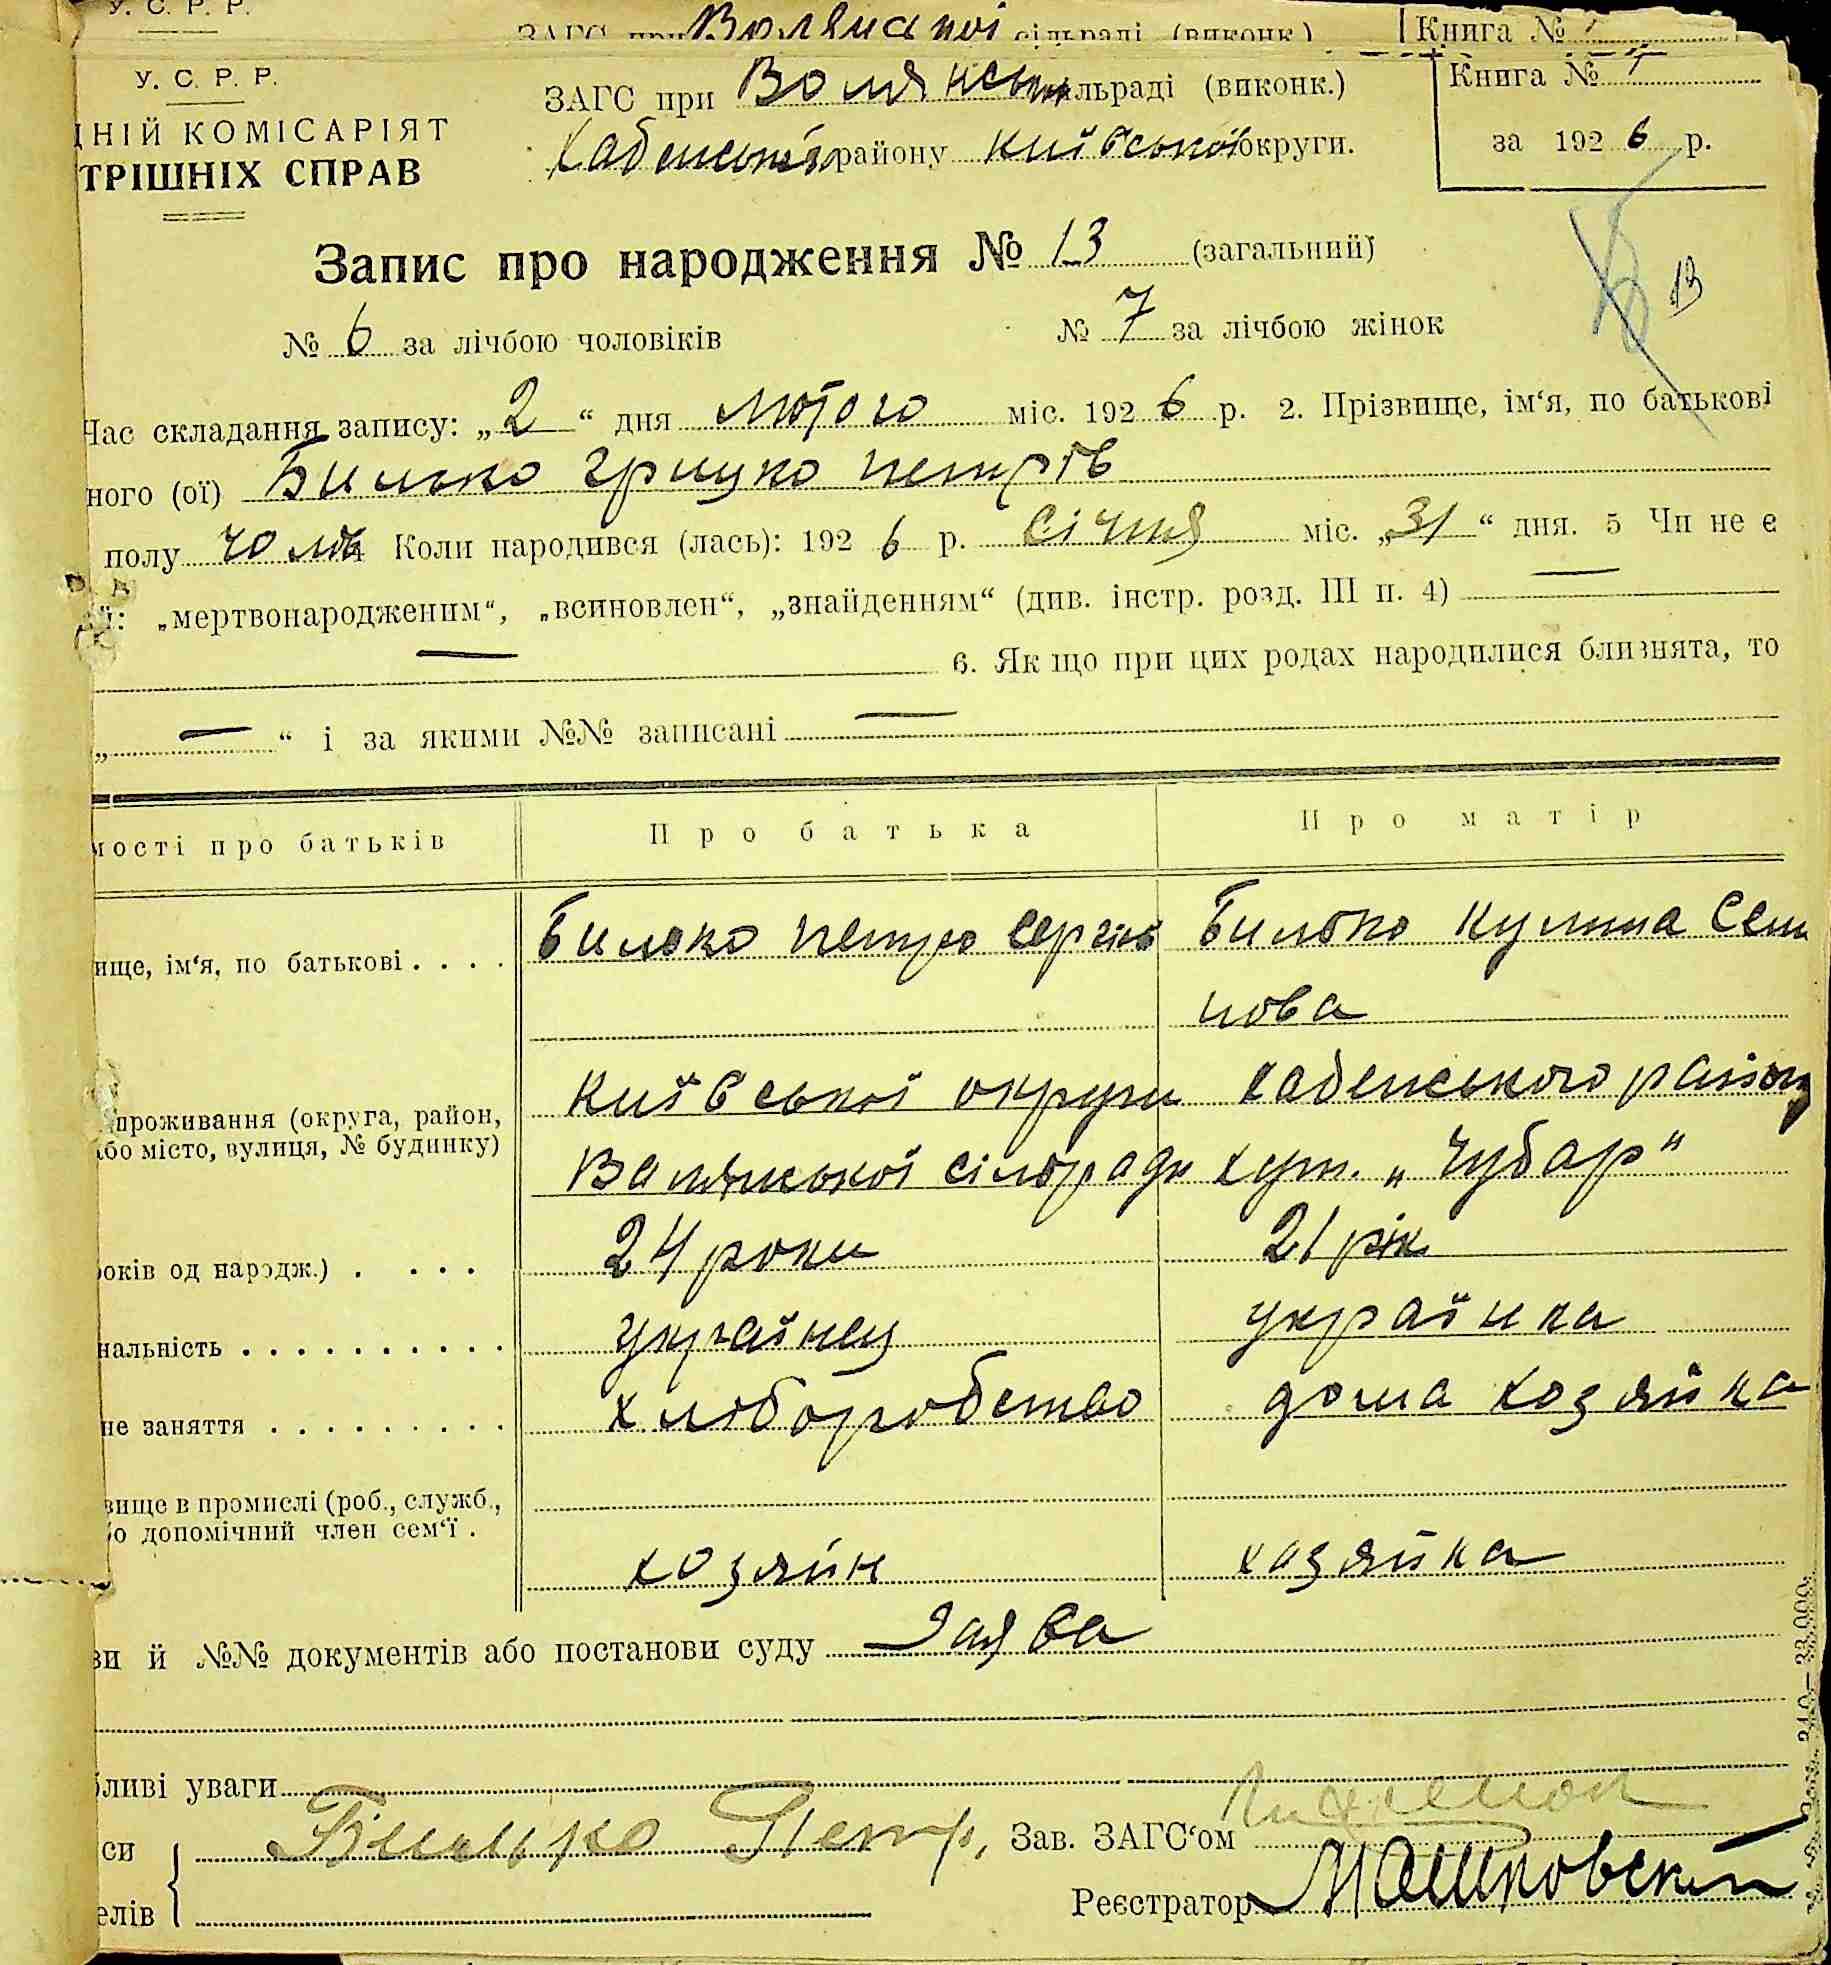 У. С. Р. Р.
ЗАГС при сільраді (виконк.) Книга №
У. С. Р. Р.
ЗАГС при льраді (виконк.) Книга №
ДНІЙ КОМІСАРІЯТ
Хабенського району Київської округи. за 1926 р.
ТРІШНІХ СПРАВ
Запис про народження № 13 (загальний)
13
№ 6 за лічбою чоловіків № 7 за лічбою жінок
Час складання запису: „2“ дня лютого міс. 1926 р. 2. Прізвище, ім‘я, по батькові
ного (ої) Билько Грицко Петрів
полу чолов Коли народився (лась): 1926 р. Січня міс. „31“ дня. 5 Чи не є
ії: „мертвонародженим“, „всиновлен“, „знайденням“ (див. інстр. розд. III п. 4) —
— 6. Як що при цих родах народилися близнята, то
„ — “ і за якими №№ записані —
мості про батьків Про батька Про матір
ище, ім‘я, по батькові . . . . Билько Петро Сергіїв Билько Кулина Семе
нова
проживання (округа, район, Київської округи Хабенського району
або місто, вулиця, № будинку) Волянської сільради хут. „Чубар“
років од народж.) . . . . 24 роки 21 рік
нальність . . . . . . . . . . українец українка
не заняття . . . . . . . . . хліборобство дома хозяйка
вище в промислі (роб., служб.,
бо допомічний член сем‘ї . хозяйн хазяйка
ви й №№ документів або постанови суду Заява
бливі уваги
си Билько Петр, Зав. ЗАГС‘ом
елів Реєстратор Машковский